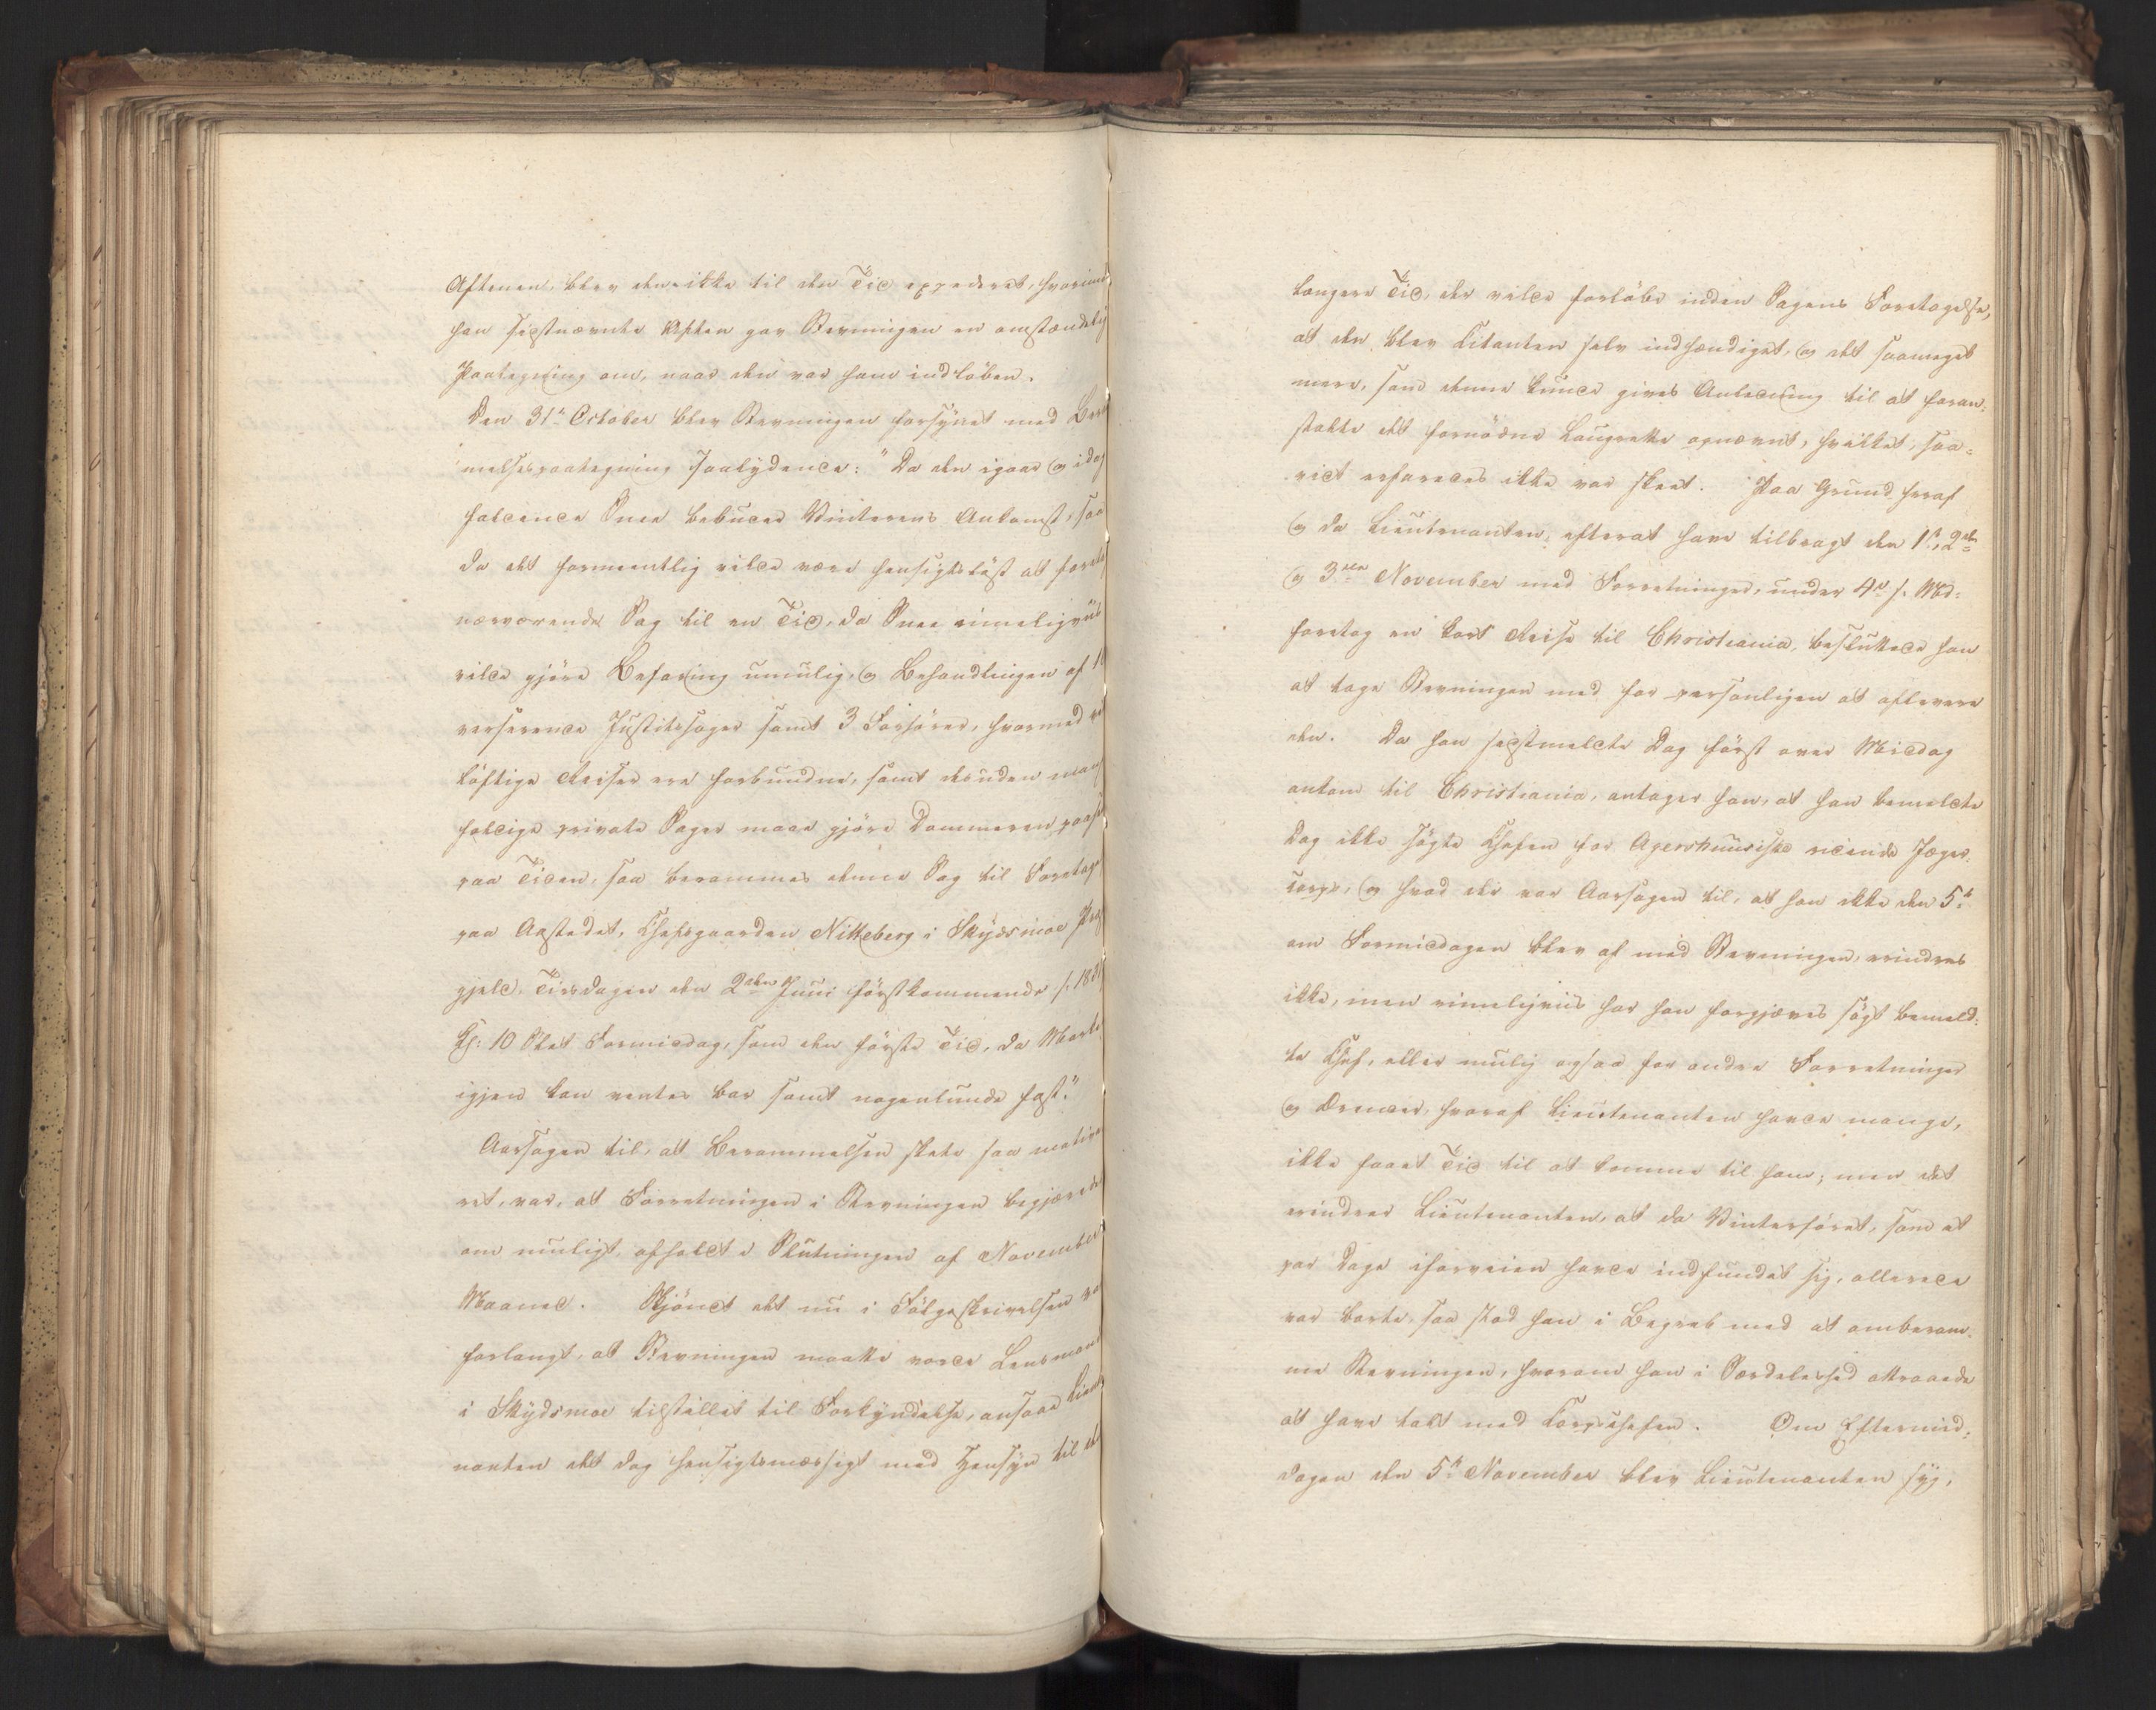 Aftenen, blev den ikke til den Tid expederet, hvorimod
han sidstnævnte Aften gav Stevningen en omstændelig
Paategning om, naar den var ham indløben.
Den 31te October blev Stevningen forsynet med Beram
melsespaategning saalydende: "Da den igaar og idag
faldende Snee bebuder Vinterens Ankomst, saa
da det formeentlig vilde være hensigtsløst at foretage
nærværende Sag til en Tid, da Snee rimeligviis
vilde gjøre Befaring umulig, og Behandlingen af
verserende Justitssager samt 3 Forhører, hvormed vid
løftige Reiser ere forbundne, samt desuden mang
foldige private Sager maae gjøre Dommeren
paa Tiden, saa berammes denne Sag til Foretagelse
paa Aastedet, Chefsgaarden Nitteberg i Skydsmoe Præste
gjeld, Tirsdagen den 2den Juni førstkommende
Kl: 10 Slet Formiddag, som den første Tid, da Marken
igjen kan ventes bar samt nogenlunde fast."
Aarsagen til, at Berammelsen skete saa motive
ret, var, at Forretningen i Stevningen begjæredes
om muligt afholdt i Slutningen af November
Maaned. Skjøndt det nu i Følgeskrivelsen var
forlangt, at Stevningen maatte vorde Lensmanden
i Skydsmoe tilstillet til Forkyndelse, ansaae Lieut
nanten det dog hensigtsmæssigt med Hensyn til den
længere Tid, der vilde forløbe inden Sagens Foretagelse,
at den blev Citanten selv indhændiget, og det saameget
mere, som denne kunde gives Anledning til at foran-
stalte det fornødne Laugrette opnævnt, hvilket, saa-
vidt erfaredes ikke var skeet. Paa Grund heraf
og da Lieutenanten, efterat have tilbragt den 1ste, 2den
og 3die November med Forretninger, under 4de s. Md.
foretog en kort Reise til Christiania, besluttede han
at tage Stevningen med for personligen at aflevere
den. Da han sidstmeldte Dag først over Middag
ankom til Christiania, antager han, at han bemeldte
Dag ikke søgte Chefen for Agershuusiske ridende Jæger-
corps, og hvad der var Aarsagen til, at han ikke den 5te
om Formiddagen blev af med Stevningen, erindres
ikke, men rimeligviis har han forgjæves søgt bemeld-
te Chef, eller mulig ogsaa for andre Forretninger
og Ærender, hvoraf Lieutenanten havde mange,
ikke faaet Tid til at komme til ham; men det
erindrer Lieutenanten, at da Vinterføret, som et
par Dage iforveien havde indfundet sig, allerede
var borte, saa stod han i Begreb med at omberam-
me Stevningen, hvorom han i Særdeleshed attraaede
at have talt med Corpschefen. Om Eftermid-
dagen den 5te November blev Lieutenanten syg,